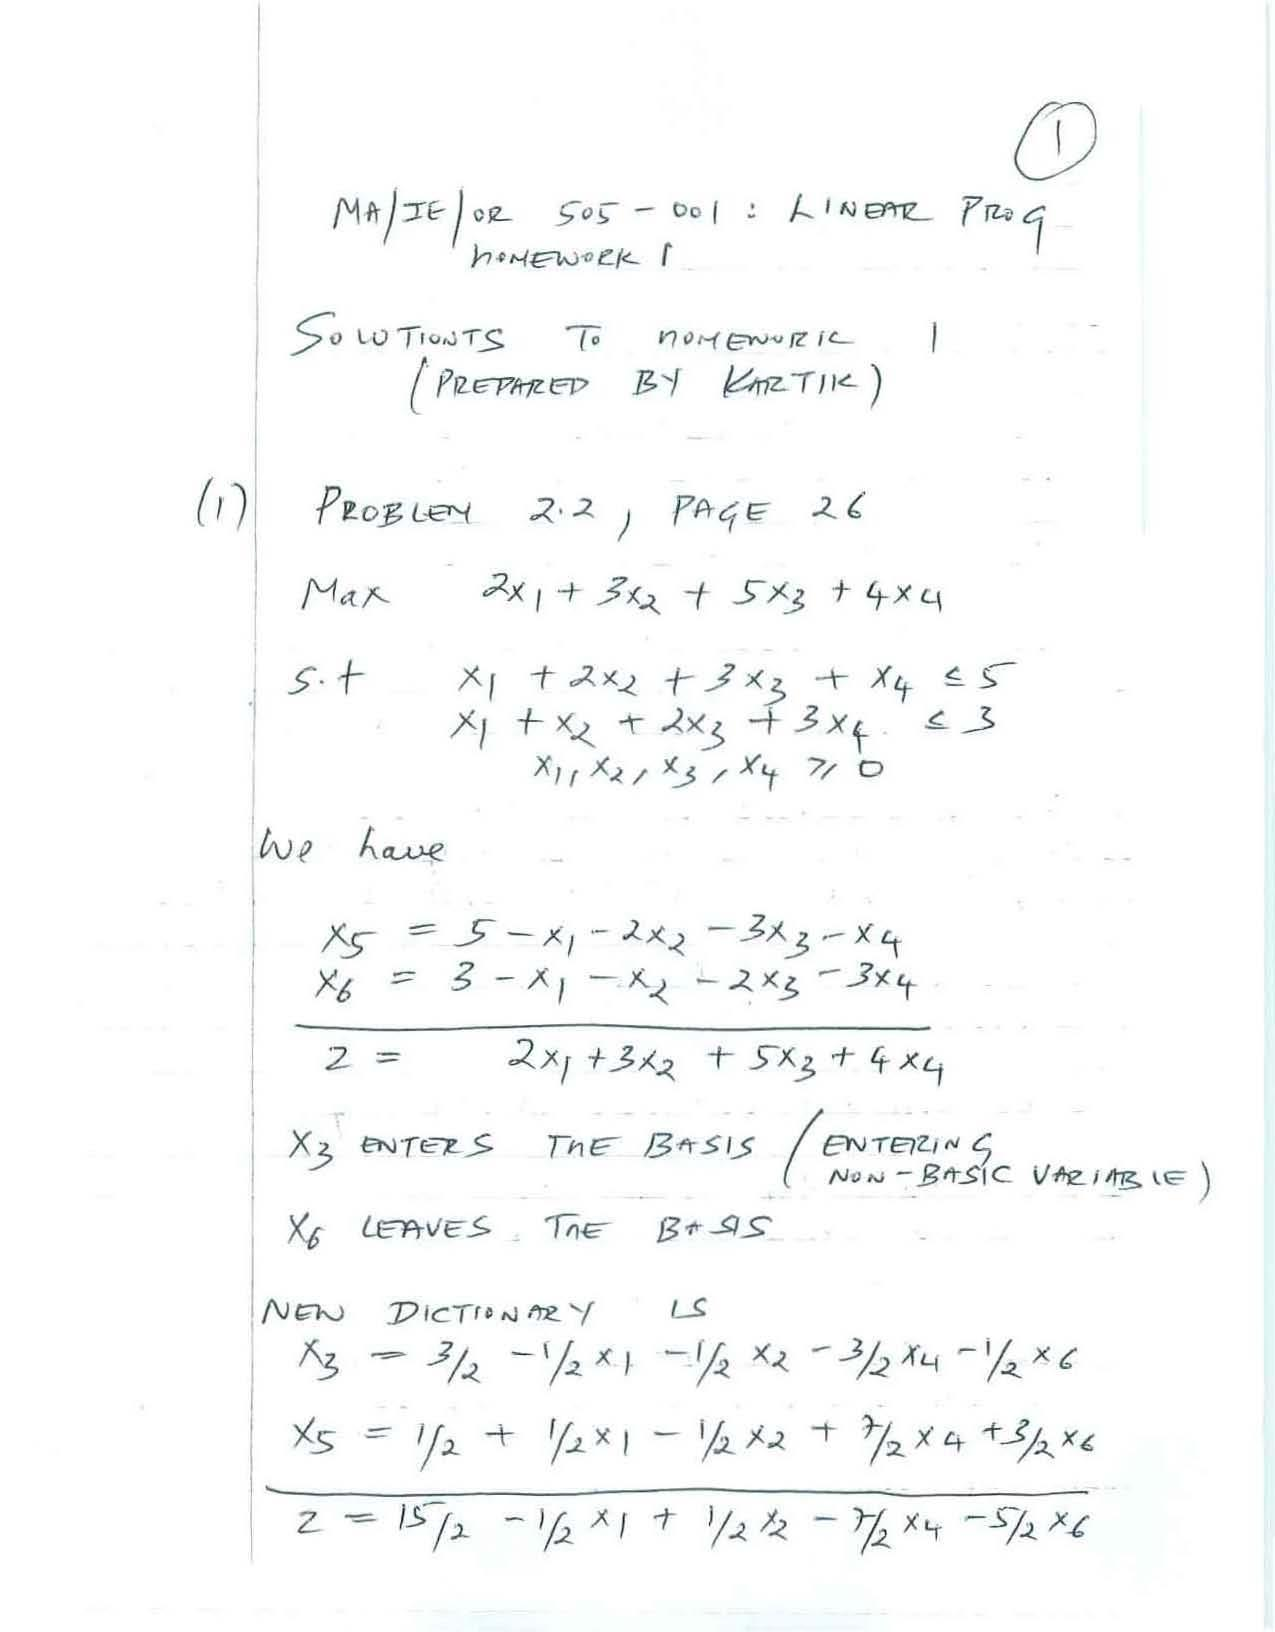 1
MA/IE/OR 505-001: LINEAR PROG
HOMEWORK 1
SOLUTIONTS TO HOMEWORK 1
(PREPARED BY KARTIK)
(1) PROBLEM 2.2, PAGE 26
Max 2x1 + 3x2 + 5x3 + 4x4
s.t x1 + 2x2 + 3x3 + x4 ≤ 5
x1 + x2 + 2x3 + 3x4 ≤ 3
x1, x2, x3, x4 ≥ 0
We have
x5 = 5 - x1 - 2x2 - 3x3 - x4
x6 = 3 - x1 - x2 - 2x3 - 3x4
z = 2x1 + 3x2 + 5x3 + 4x4
x3 ENTERS THE BASIS (ENTERING
NON-BASIC VARIABLE)
x6 LEAVES THE BASIS
NEW DICTIONARY IS
x3 = 3/2 - 1/2 x1 - 1/2 x2 - 3/2 x4 - 1/2 x6
x5 = 1/2 + 1/2 x1 - 1/2 x2 + 7/2 x4 + 3/2 x6
z = 15/2 - 1/2 x1 + 1/2 x2 - 7/2 x4 - 5/2 x6